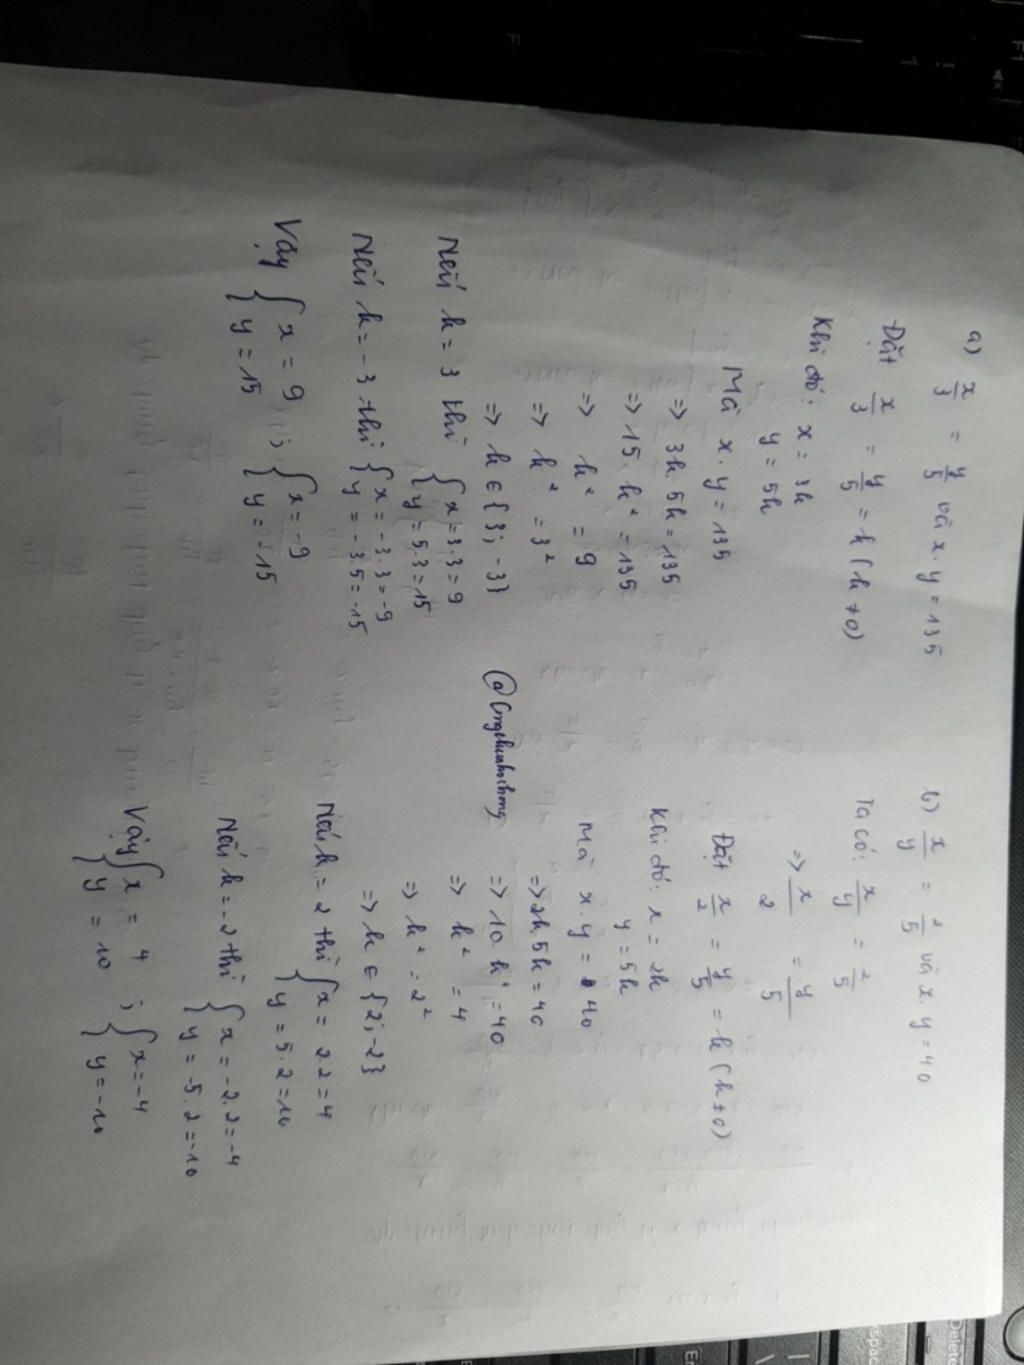 a) x/3 = y/5 và x.y = 135
Đặt x/3 = y/5 = k (k ≠ 0)
Khi đó: x = 3k
y = 5k
Mà x.y = 135
=> 3k.5k = 135
=> 15.k² = 135
=> k² = 9
=> k² = 3²
=> k ∈ {3; -3}
Nếu k = 3 thì { x = 3.3 = 9
{ y = 5.3 = 15
Nếu k = -3 thì { x = -3.3 = -9
{ y = -3.5 = -15
Vậy { x = 9 ; { x = -9
{ y = 15 { y = -15
b) x/y = 2/5 và x.y = 40
Ta có: x/y = 2/5
=> x/2 = y/5
Đặt x/2 = y/5 = k (k ≠ 0)
Khi đó: x = 2k
y = 5k
Mà x.y = 40
=> 2k.5k = 40
=> 10.k² = 40
=> k² = 4
=> k² = 2²
=> k ∈ {2; -2}
Nếu k = 2 thì { x = 2.2 = 4
{ y = 5.2 = 10
Nếu k = -2 thì { x = -2.2 = -4
{ y = -5.2 = -10
Vậy { x = 4 ; { x = -4
{ y = 10 { y = -10
Delete